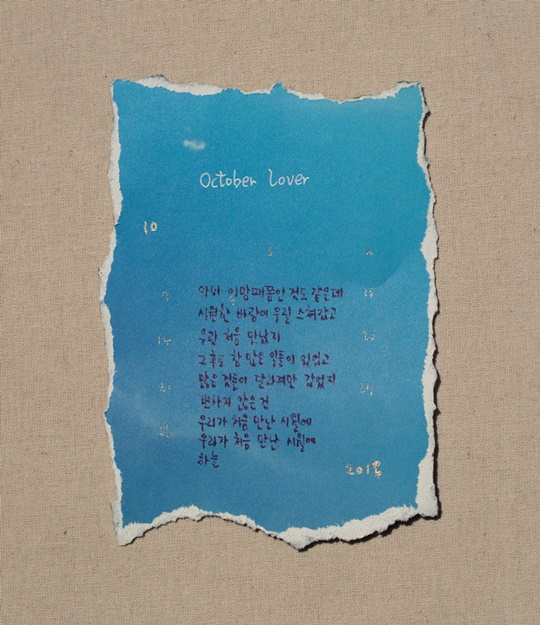 October Lover
10
5 6
아마 이맘때쯤인 것도 같은데
시원한 바람이 우릴 스쳐갔고
우린 처음 만났지
그 후로 참 많은 일들이 있었고
많은 것들이 달라져만 갔었지
변하지 않은 건
우리가 처음 만난 시월에
우리가 처음 만난 시월에
하늘